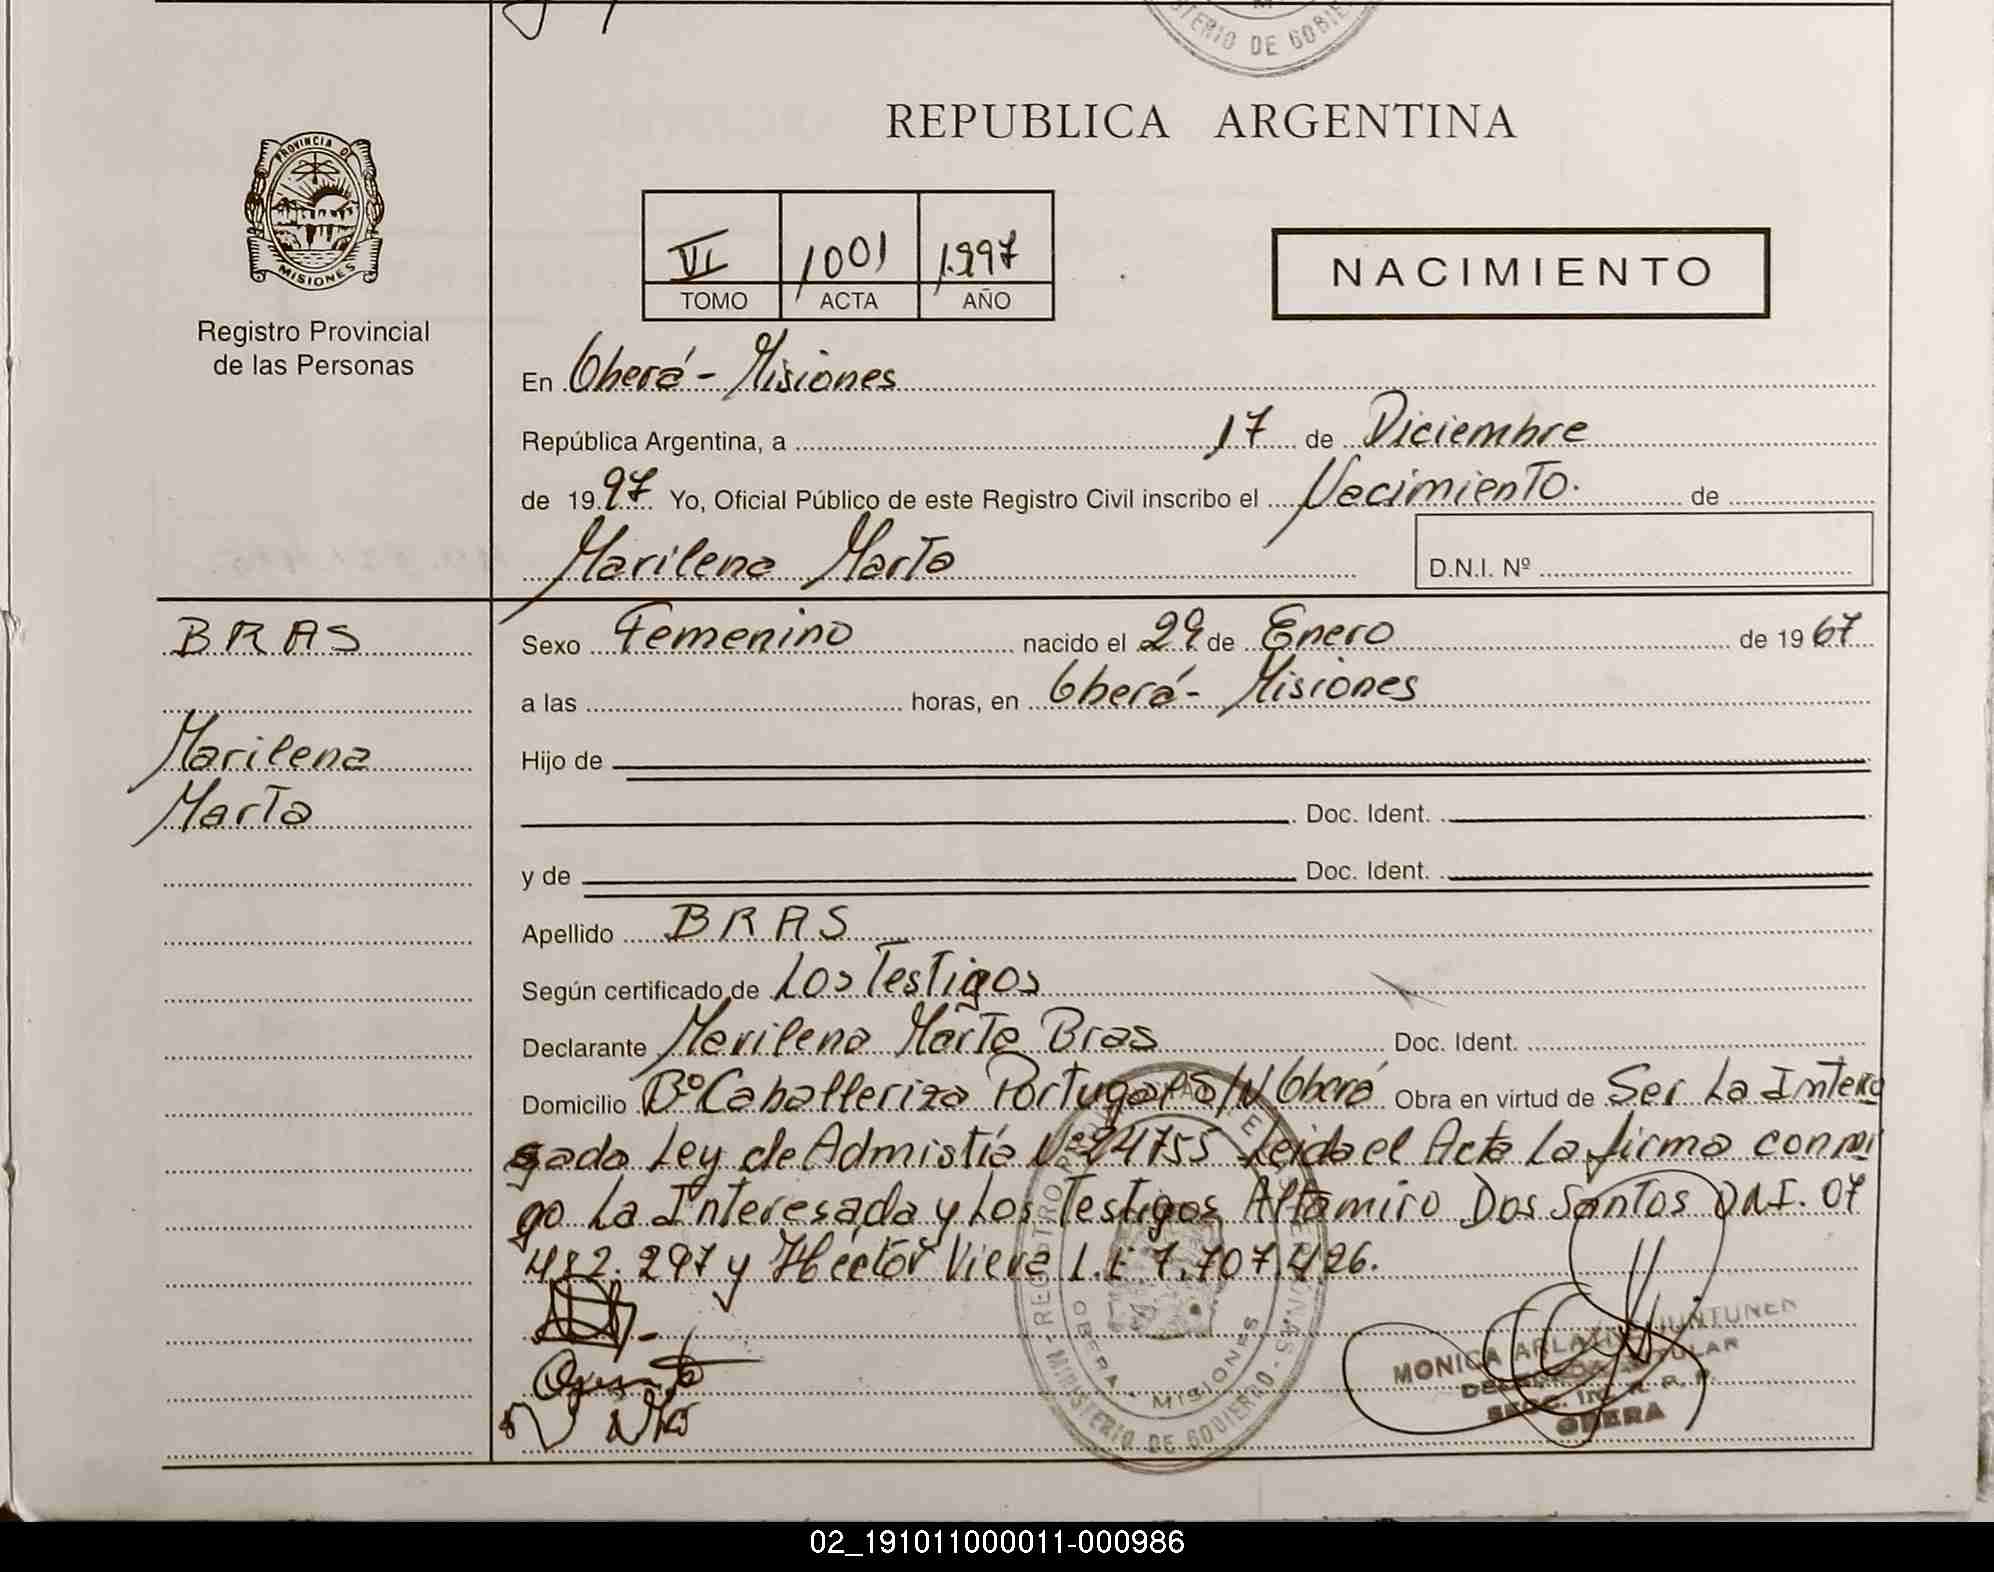 MINISTERIO DE GOBIE
REPUBLICA ARGENTINA
PROVINCIA DE
MISIONES
Registro Provincial
de las Personas
VI 1001 1.997
TOMO ACTA AÑO
NACIMIENTO
En Oberá - Misiones
República Argentina, a 17 de Diciembre
de 19 97 Yo, Oficial Público de este Registro Civil inscribo el Nacimiento. de
Marilena Marta
D.N.I. Nº
BRAS
Marilena
Marta
Sexo Femenino nacido el 29 de Enero de 19 67
a las horas, en Oberá - Misiones
Hijo de
Doc. Ident.
y de Doc. Ident.
Apellido BRAS
Según certificado de Los Testigos
Declarante Marilena Marta Bras Doc. Ident.
Domicilio Bº Caballeriza Portugal S/N Oberá Obra en virtud de Ser La Intere
sada Ley de Admistía Nº 24755 Leida el Acta La firma conmi
go La Interesada y Los Testigos Altamiro Dos Santos DNI. 07
482.297 y Héctor Viera L.E 7.707.426.
REGISTRO
OBERA - MISIONES
MINISTERIO DE GOBIERNO
MONICA
TITULAR
OBERA
02_191011000011-000986